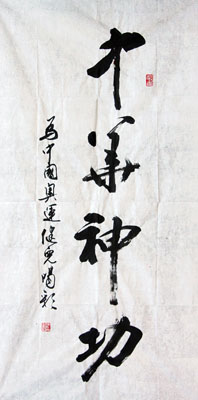 中華神功
為中國奧運健兒喝彩